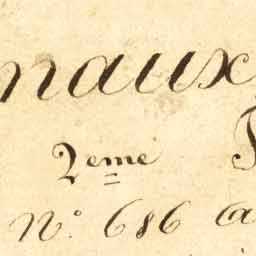 naux
2eme
N° 686 a